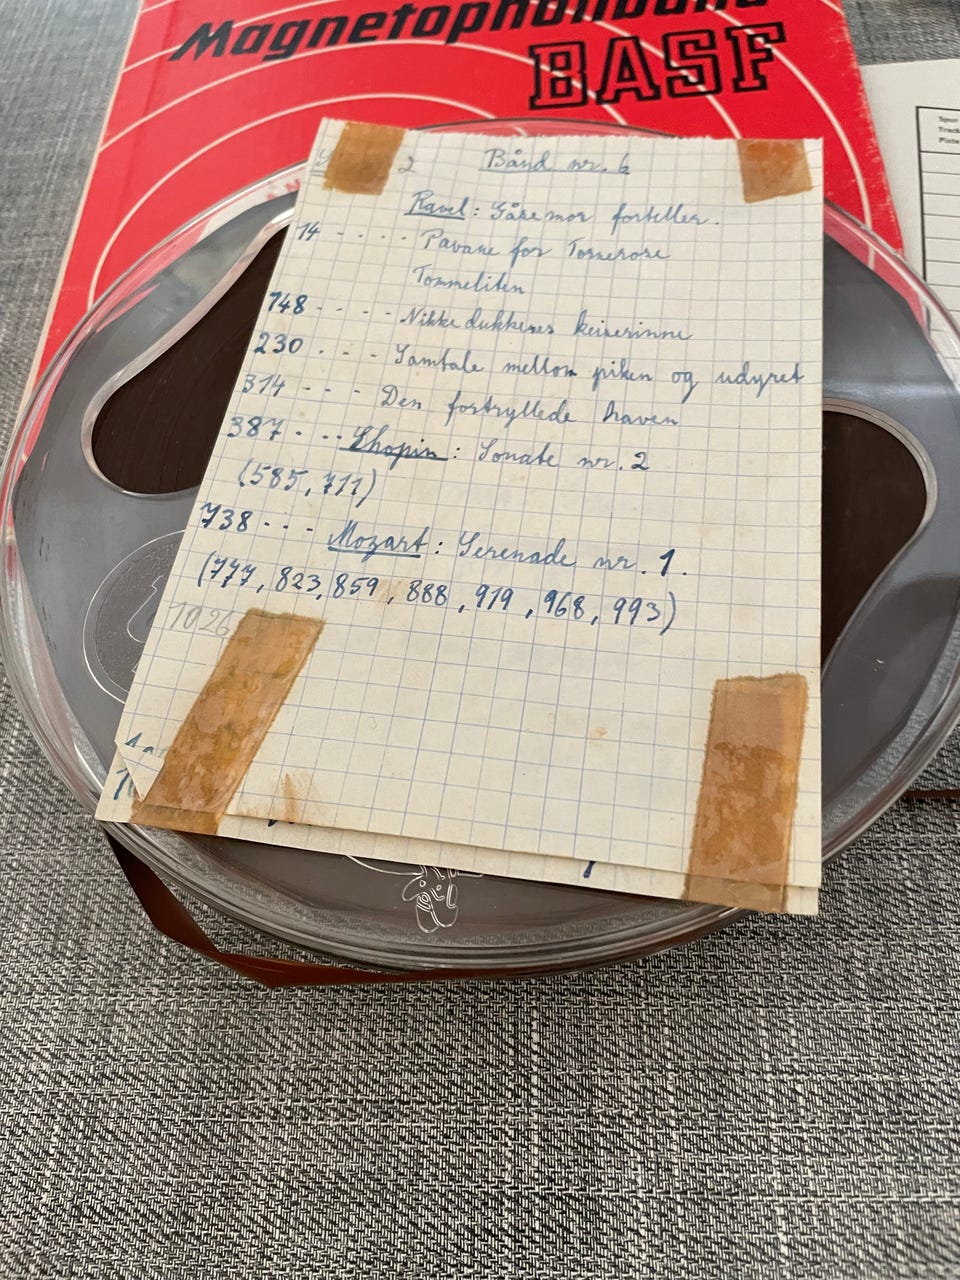 Magnetophonband
BASF
2 Bånd nr. 6
Ravel: Gåsemor forteller.
14 - - - - Pavane for Tornerose
Tommeliten
148 - - - - Nikkedukkenes keiserinne
230 . - - - Samtale mellom piken og udyret
314 - - - - Den fortryllede haven
387 - - - Chopin: Sonate nr. 2
(585, 711)
738 - - - Mozart: Serenade nr. 1.
(777, 823, 859, 888, 919, 968, 993)
1026